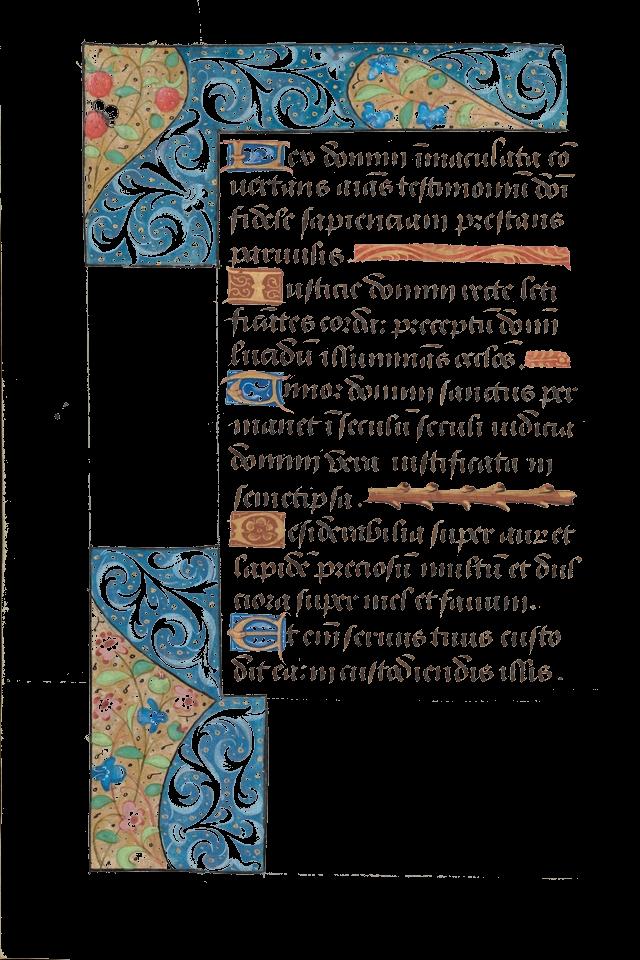 Lex domini īmaculata cō
uertens aīas testimoniū doī
fidele sapienciam prestans
paruulis.
Iusticie domini recte leti
ficātes corda: preceptū domī
lucidū illuminās oculos.
Timor domini sanctus per
manet ī seculū seculi iudicia
domini vera iustificata in
semetipsa.
Desiderabilia super aurū et
lapidē preciosū multū et dul
ciora super mel et fauum.
Et eni͂ seruus tuus custo
dit ea: in custodiendis illis.